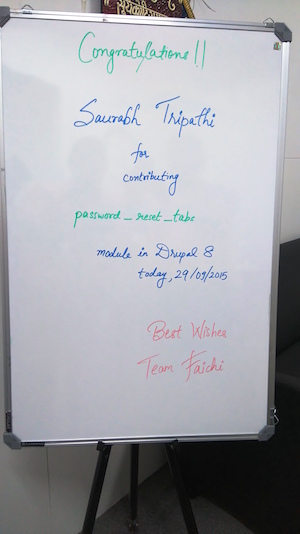 सत्यकारी
Congratulations!!
Saurabh Tripathi
for
contributing
password_reset_tabs
module in Drupal 8
today, 29/09/2015
Best Wishes
Team Faichi